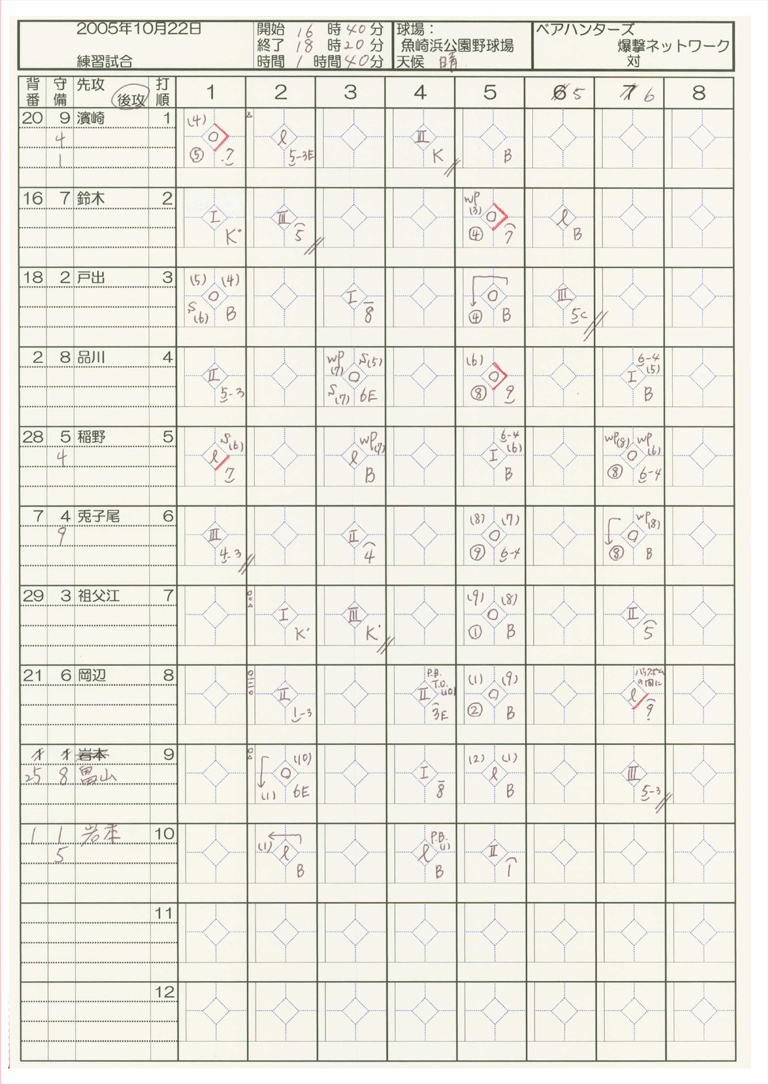 2005年10月22日
練習試合
開始 16 時 40 分
終了 18 時 20 分
時間 1 時間 40 分
球場：
魚崎浜公園野球場
天候 晴
ベアハンターズ
爆撃ネットワーク
対
背番 守備 先攻 後攻 打順 1 2 3 4 5 6 5 7 6 8
20 9 濱崎 1 (4) ⑤ 7 5-3E II K B
4
1
16 7 鈴木 2 I K III 5 WP (3) ④ 7 B
18 2 戸出 3 (5) (4) S (6) B I 8 ④ B III 5C
2 8 品川 4 II 5-3 WP (7) S(5) S(7) 6E (6) ⑧ 9 6-4 (5) I B
28 5 稲野 5 S(6) 7 WP(7) B 6-4 (6) I B WP(8) WP (6) ⑧ 6-4
4
7 4 兎子尾 6 III 4-3 II 4 (8) (7) ⑨ 6-4 WP(8) ⑧ B
9
29 3 祖父江 7 I K III K (9) (8) ① B II 5
21 6 岡辺 8 II 1-3 P.B. T.O. (10) II 3E (1) (9) ② B 9
1 1 岩本 9 (10) (1) 6E I 8 (2) (1) B III 5-3
25 8 畠山
1 1 岩本 10 (1) B P.B. (1) B II 1
5
11
12